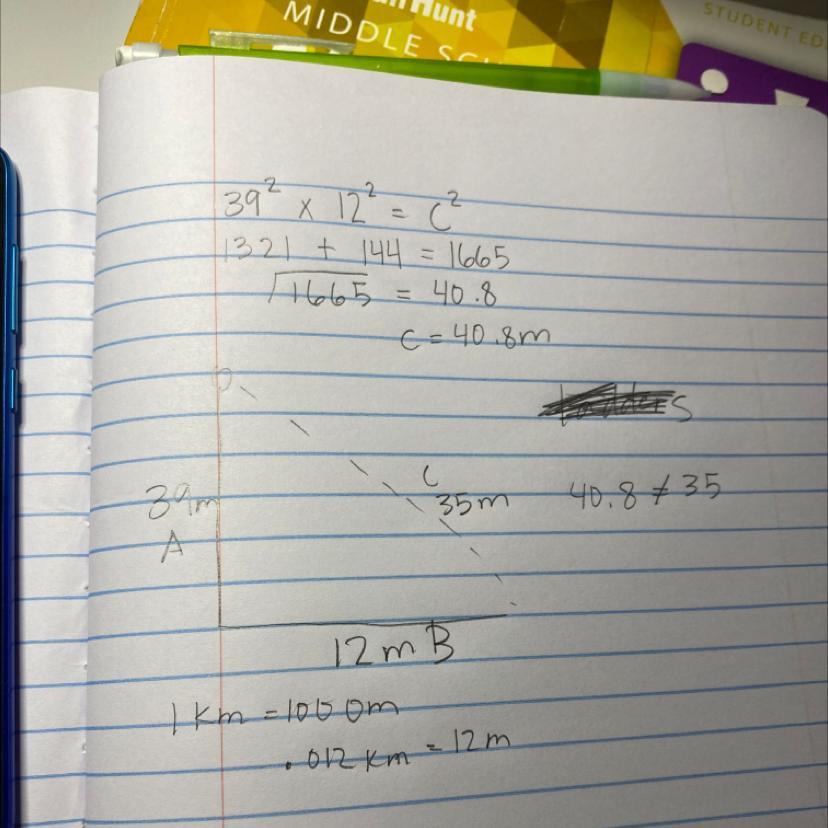 Hunt
MIDDLE
STUDENT ED
39² x 12² = C²
1321 + 144 = 1665
√1665 = 40.8
C = 40.8m
39m
A
C
35m
40.8 ≠ 35
12m B
1 Km = 1000m
.012 Km = 12m